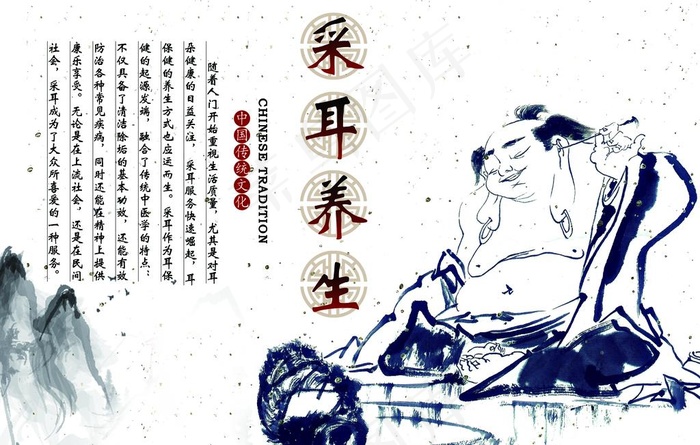 采耳养生
CHINESE TRADITION
中国传统文化
随着人门开始重视生活质量，尤其是对耳
朵健康的日益关注，采耳服务快速崛起，耳
保健的养生方式也应运而生。采耳作为耳保
健的起源发端，融合了传统中医学的特点：
不仅具备了清洁除垢的基本功效，还能有效
防治各种常见疾病，同时还能在精神上提供
康乐享受。无论是在上流社会，还是在民间
社会，采耳成为了大众所喜爱的一种服务。